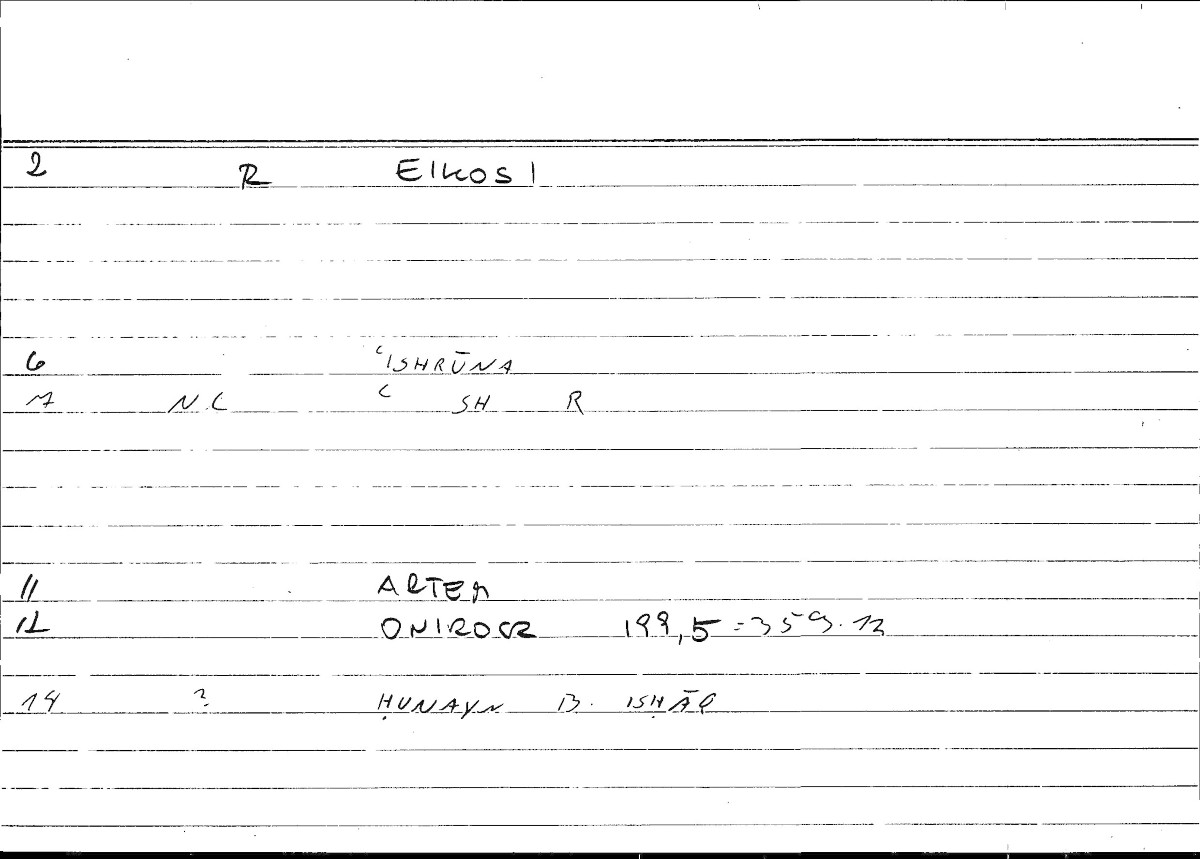 2 R EIKOSI
6 ʿISHRŪNA
7 N.C ʿ SH R
11 ARTEM
12 ONIROCR 199,5 = 359.12
14 ? ḤUNAYN B. ISḤĀQ